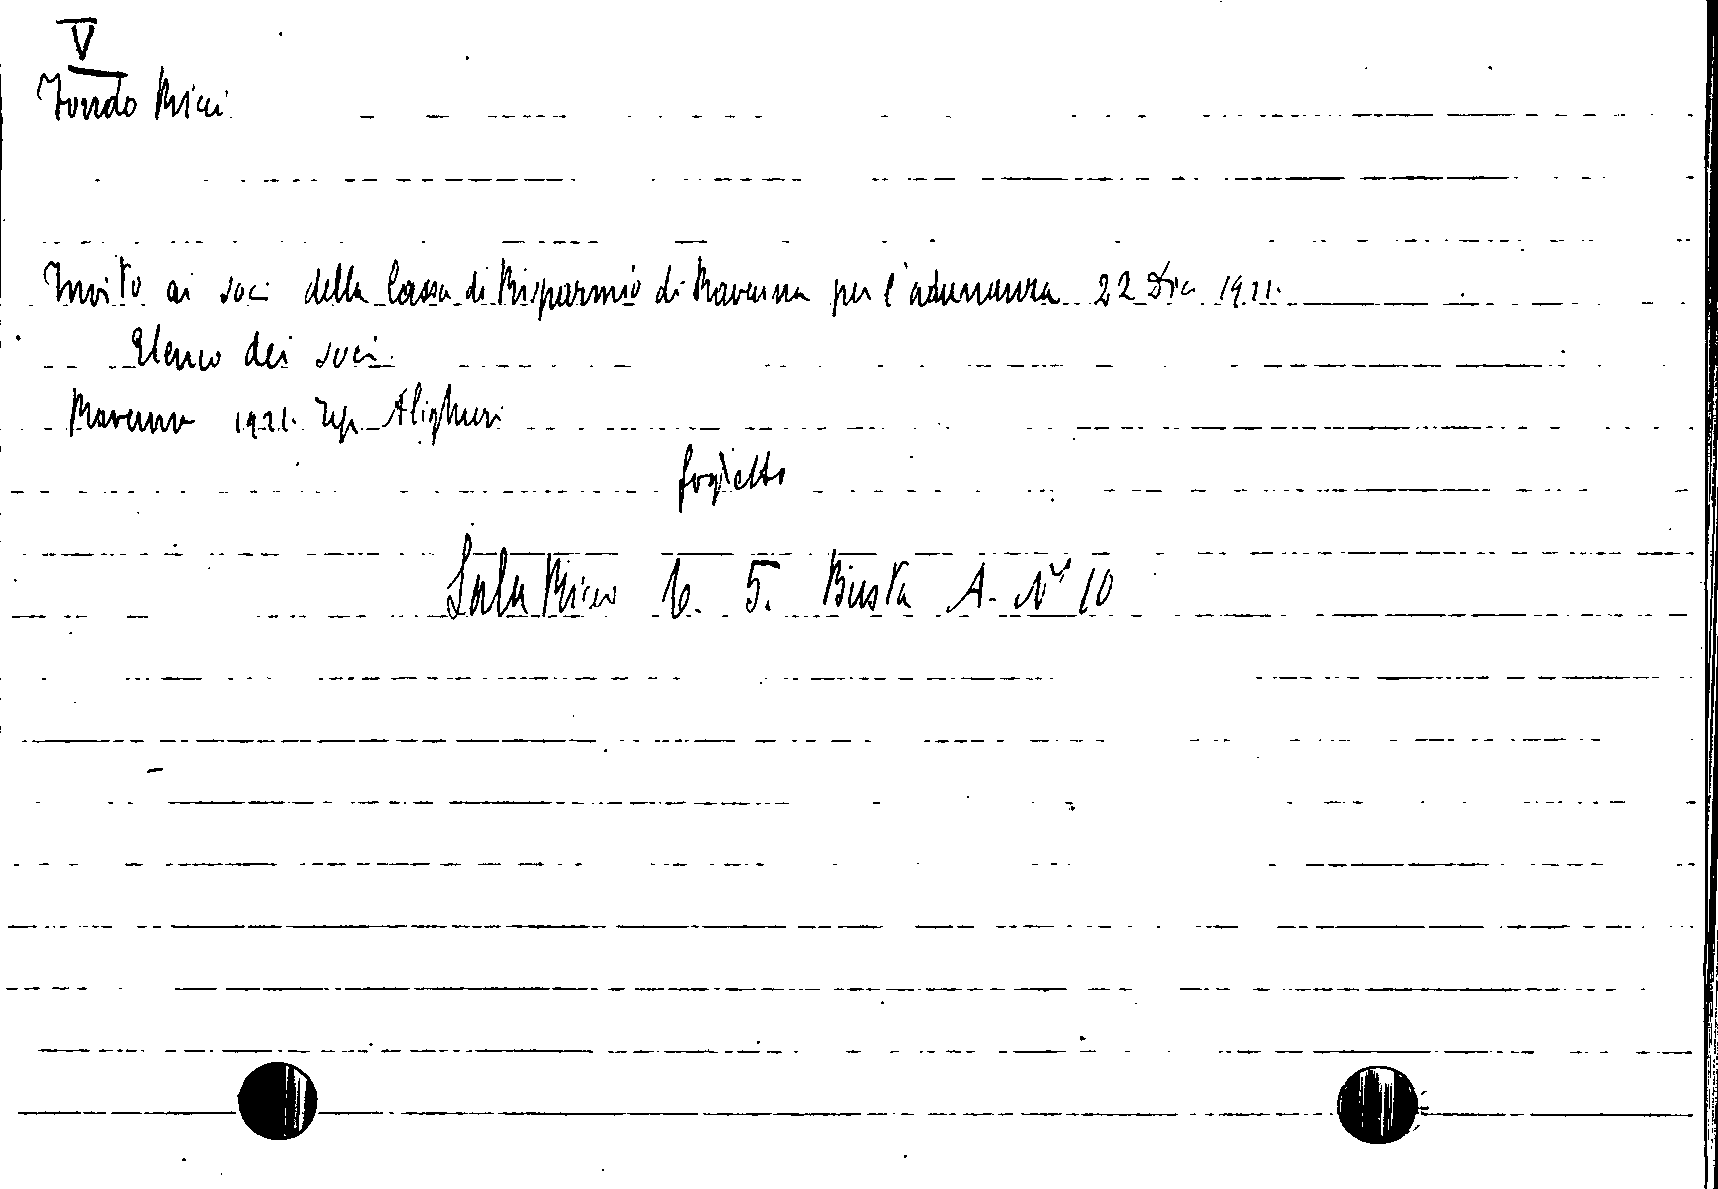 V
Fondo Ricci
Invito ai soci della Cassa di Risparmio di Ravenna per l'adunanza 22 Dic 1921.
Elenco dei soci.
Ravenna 1921. Tip. Alighieri
foglietto
Sala Ricci 6. 5. Busta A. Nº 10